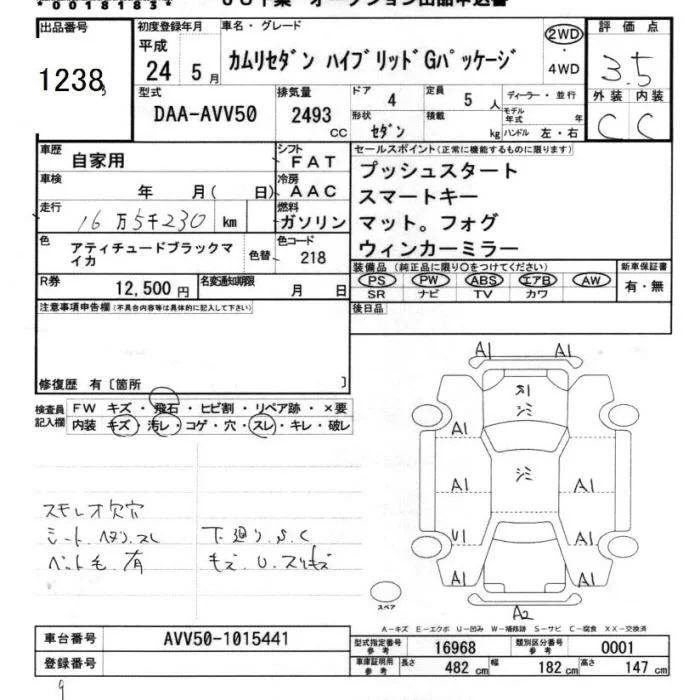 *00181835*
出品番号 初度登録年月 車名・グレード 2WD 評価点
1238 平成 24 5月 カムリセダン ハイブリッドGパッケージ ・ 4WD 3.5
型式 排気量 ドア 4 定員 5 人 ディーラー・並行 外装 内装
DAA-AVV50 2493 CC 形状 セダン 積載 kg モデル年式 年 ハンドル 左・右 C C
車歴 自家用 シフト FAT セールスポイント(正常に機能するものに限ります)
車検 年 月( 日) 冷房 AAC プッシュスタート
スマートキー
走行 16万5千230 km 燃料 ガソリン マット。フォグ
色 アティチュードブラックマイカ 色替 色コード 218 ウィンカーミラー
装備品(純正品に限り○をつけてください) 新車保証書
R券 12,500円 名変通知期限 月 日 PS PW ABS エアB AW 有・無
SR ナビ TV カワ
注意事項申告欄(不具合内容等は具体的に記入して下さい) 後日品
修復歴 有〔箇所 〕
検査員記入欄 FW キズ・飛石・ヒビ割・リペア跡・×要
内装 キズ・汚レ・コゲ・穴・スレ・キレ・破レ
A1 A1
A1
A1 A1
U1
A1 A1
A2
ステレオ欠穴
シート.ヘタリ.スレ 下廻り.S.C
ペット毛.有 キズ.U.スリキズ
スペア
A-キズ E-エクボ U-凹み W-補修跡 S-サビ C-腐食 XX-交換済
車台番号 AVV50-1015441 型式指定番号 参考 16968 類別区分番号 参考 0001
登録番号 車庫証明用 参考 長さ 482 cm 幅 182 cm 高さ 147 cm